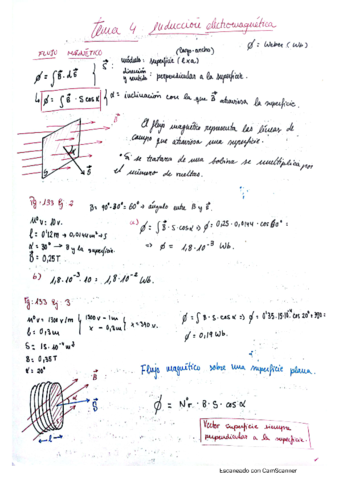 Tema 4 Inducción electromagnética
FLUJO MAGNÉTICO
(largo·ancho)
ϕ = Weber (Wb)
ϕ = ∫B⃗·dS⃗
S⃗: módulo: superficie (l x a)
dirección y sentido: perpendiculares a la superficie.
ϕ = ∫B⃗ · S cosα
α = inclinación con la que B⃗ atraviesa la superficie.
El flujo magnético representa las líneas de
campo que atraviesa una superficie.
* Si se tratara de una bobina se multiplica por
el número de vueltas.
B⃗
α
S⃗
Pg: 193 Ej 2
θ = 90°-30° = 60° → ángulo entre B y S⃗.
Nº v: 10 v.
l = 0'12m → 0,0144m² → S
α = 30° → B y la superficie.
B⃗ = 0,25T
a) ϕ = ∫B⃗ · S · cosα ⇒ ϕ = 0,25 · 0,0144 · cos 60° =
⇒ ϕ = 1,8·10⁻³ Wb
b) 1,8·10⁻³ · 10 = 1,8·10⁻² Wb.
Pg: 193 Ej 3
Nº v = 1300 v/m
1300 v - 1m
x - 0,3m
x = 390 v.
l = 0,3m
S = 15·10⁻⁴ m²
B = 0,35T
α = 20°
ϕ = ∫B · S · cosα ⇒ ϕ = 0'35·15·10⁻⁴ cos 20° · 390 =
ϕ = 0,19 Wb.
Flujo magnético sobre una superficie plana.
B⃗
S⃗
l
ϕ = Nº v · B · S · cosα
Vector superficie siempre
perpendicular a la superficie.
Escaneado con CamScanner